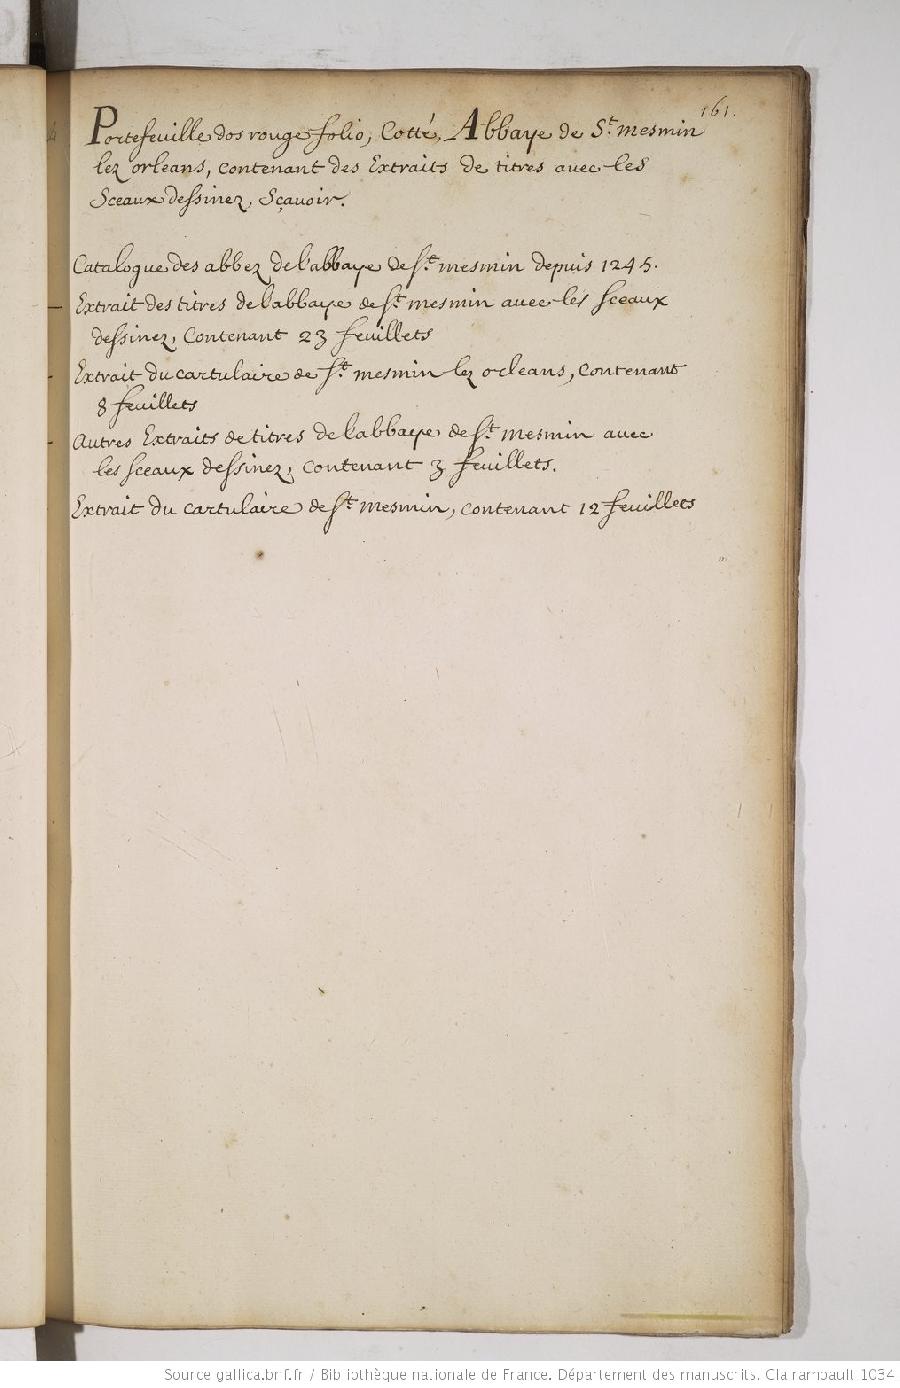 161.
Portefeuille dos rouge folio, Cotté, Abbaye de St. mesmin
lez orleans, contenant des Extraits de titres avec les
Sceaux dessinez, Sçavoir.
Catalogue des abbez de l'abbaye de St. mesmin depuis 1245.
Extrait des titres de l'abbaye de St. mesmin avec les sceaux
dessinez, Contenant 23 feuillets
Extrait du cartulaire de St. mesmin lez orleans, contenant
8 feuillets
Autres Extraits de titres de l'abbaye de St. Mesmin avec
les sceaux dessinez, contenant 3 feuillets.
Extrait du cartulaire de St. mesmin, contenant 12 feuillets
Source gallica.bnf.fr / Bibliothèque nationale de France. Département des manuscrits. Clairambault 1034